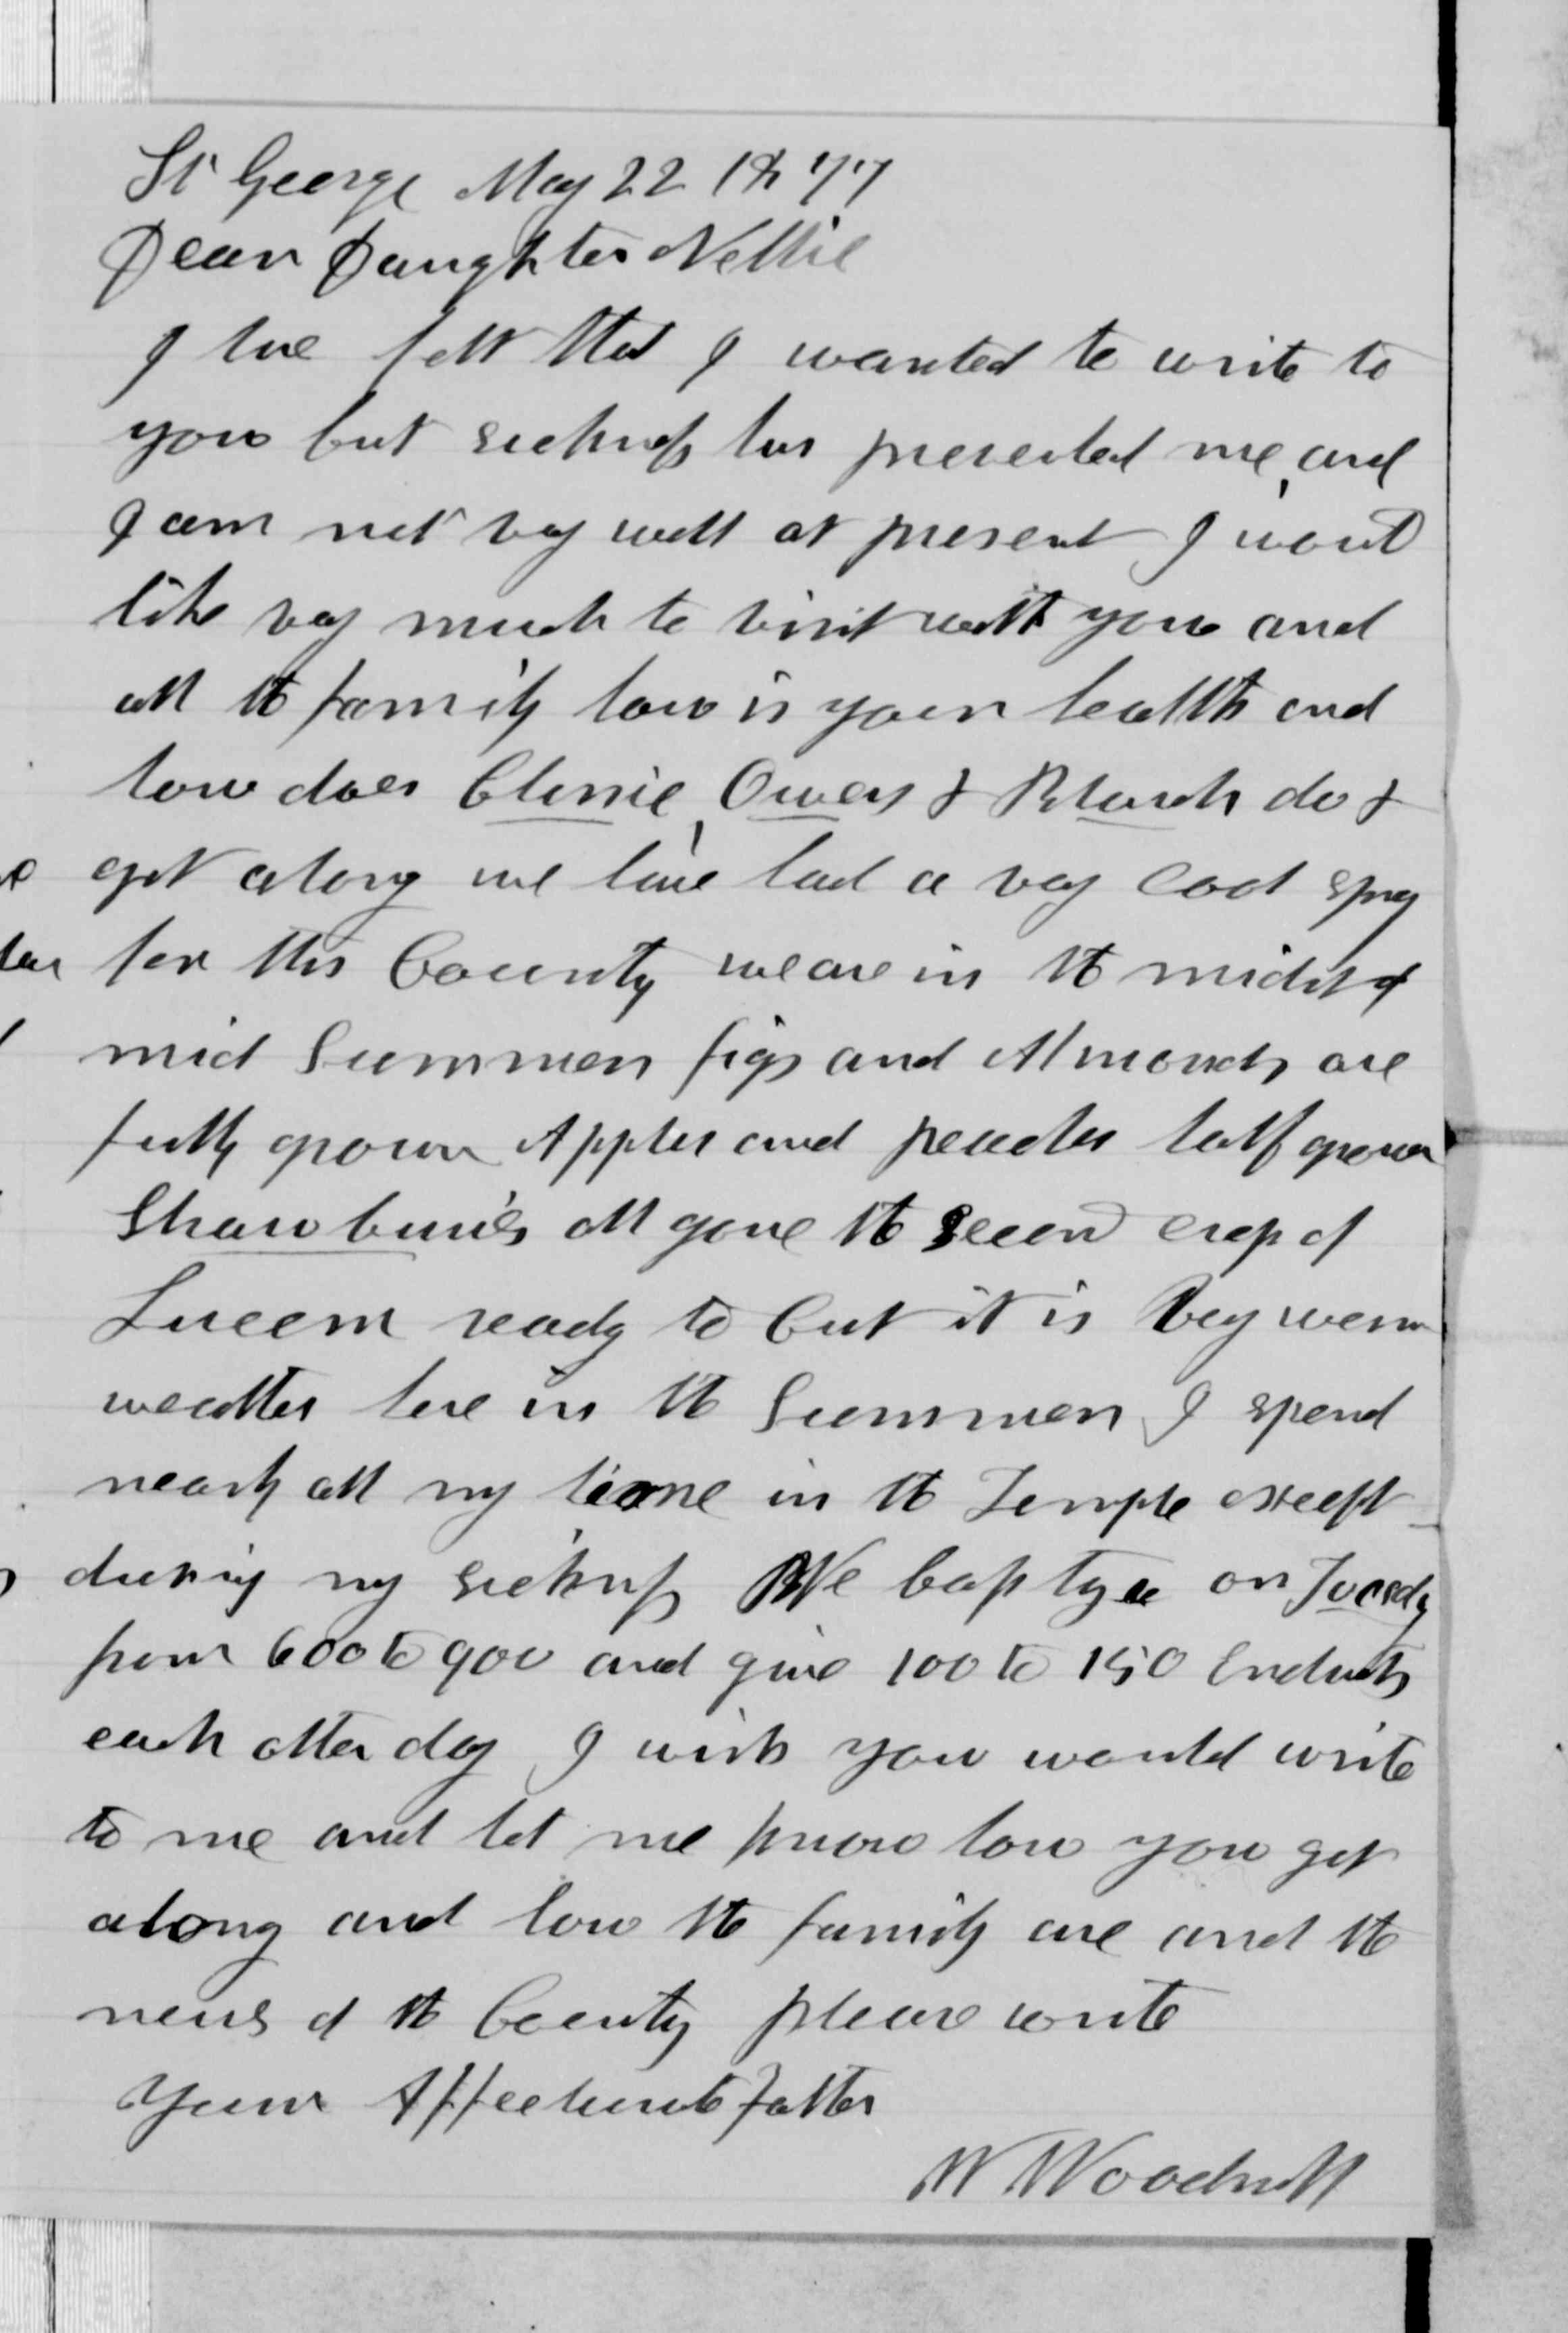 St George May 22 1877
Dear Daughter Nellie
I have felt that I wanted to write to
you but sickness has prevented me, and
I am not vey well at present I would
like vey much to visit with you and
all the family how is your health and
how does Clarie, Owen & Blanch do &
get along we have had a vey cool spng
for this County we are in the midst of
mid Summer figs and Almonds are
fully grown Apples and peaches half grown
Straw buries all gone the Second crop of
Lucern ready to Cut it is Vey warm
weather here in the Summer I spend
nearly all my time in the Temple except
during my sickness We baptize on Tuesdy
from 600 to 900 and give 100 to 150 Endmts
each other day I wish you would write
to me and let me know how you get
along and how the family are and the
news of the County please write
Your Affectionate Father
W Woodruff